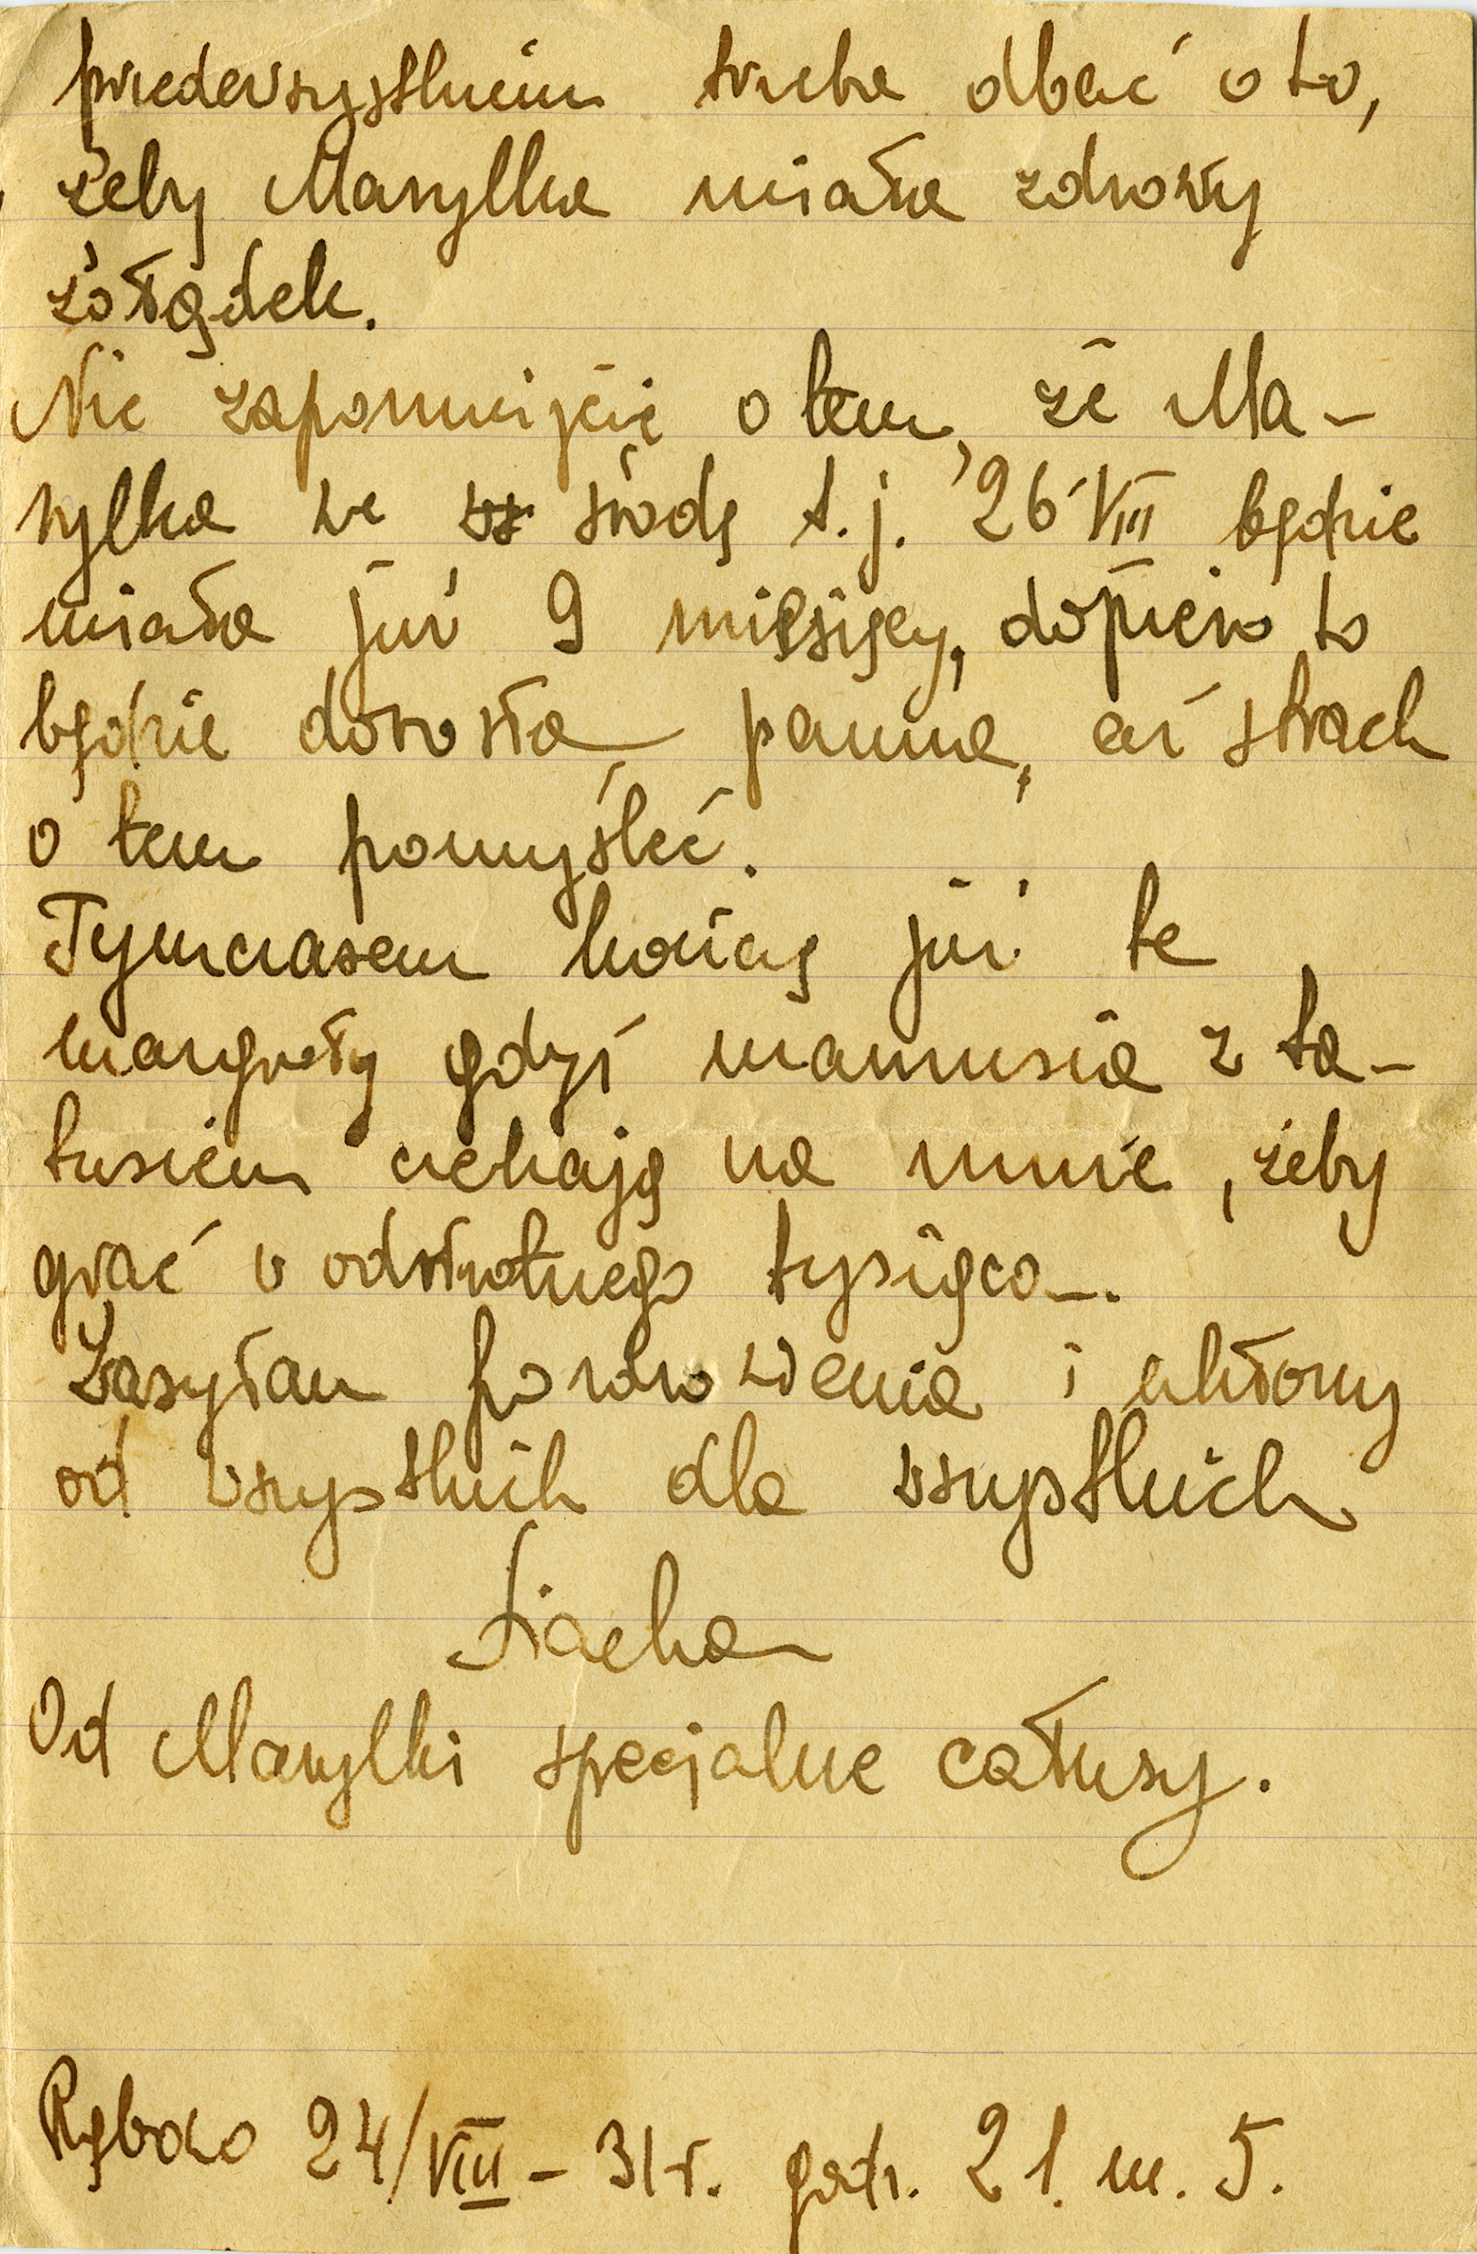 przedewszystkiem trzeba dbać o to,
żeby Marylka miała zdrowy
żołądek.
Nie zapomnijcie o tem, że Ma-
rylka we środę t.j. 26 VIII będzie
miała już 9 miesięcy, dopiero to
będzie dorosła panna, aż strach
o tem pomyśleć.
Tymczasem kończę już te
mangroły gdyż mamusia z ta-
tusiem czekają na mnie, żeby
grać w odwrotnego tysiąca.
Zasyłam pozdrowienia i ukłony
od wszystkich dla wszystkich
Od Marylki specjalne całusy.
24/VIII – 31 r. godz. 21. m. 5.